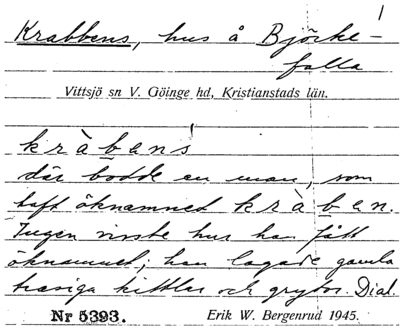 1
Krabbens, hus å Björke-
falla
Vittsjö sn V. Göinge hd, Kristianstads län.
kràbens
där bodde en man, som
haft öknamnet kràben.
Ingen visste hur han fått
öknamnet; han lagade gamla
trasiga kittlar och grytor. Dial.
Nr 5393. Erik W. Bergenrud 1945.